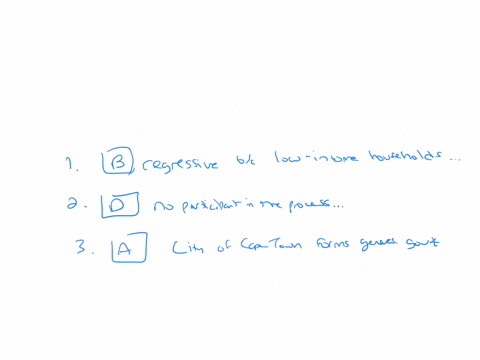 1. B, regressive b/c low-income households...
2. D no participant in the process...
3. A City of Cape Town forms govt